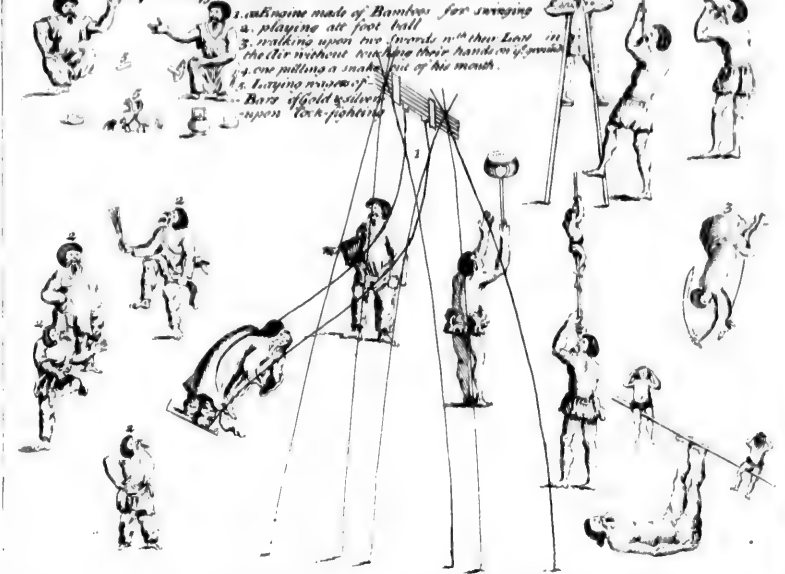 1. an Engine made of Bamboos for swinging
2. playing att foot ball
3. walking upon two Swords wth their Legs in
the Air without touching their hands on ye ground
4. one pulling a snake out of his mouth.
5. Laying wagers of
Bars of Gold & silver
upon Cock-fighting
5
5
1
2
2
2
2
3